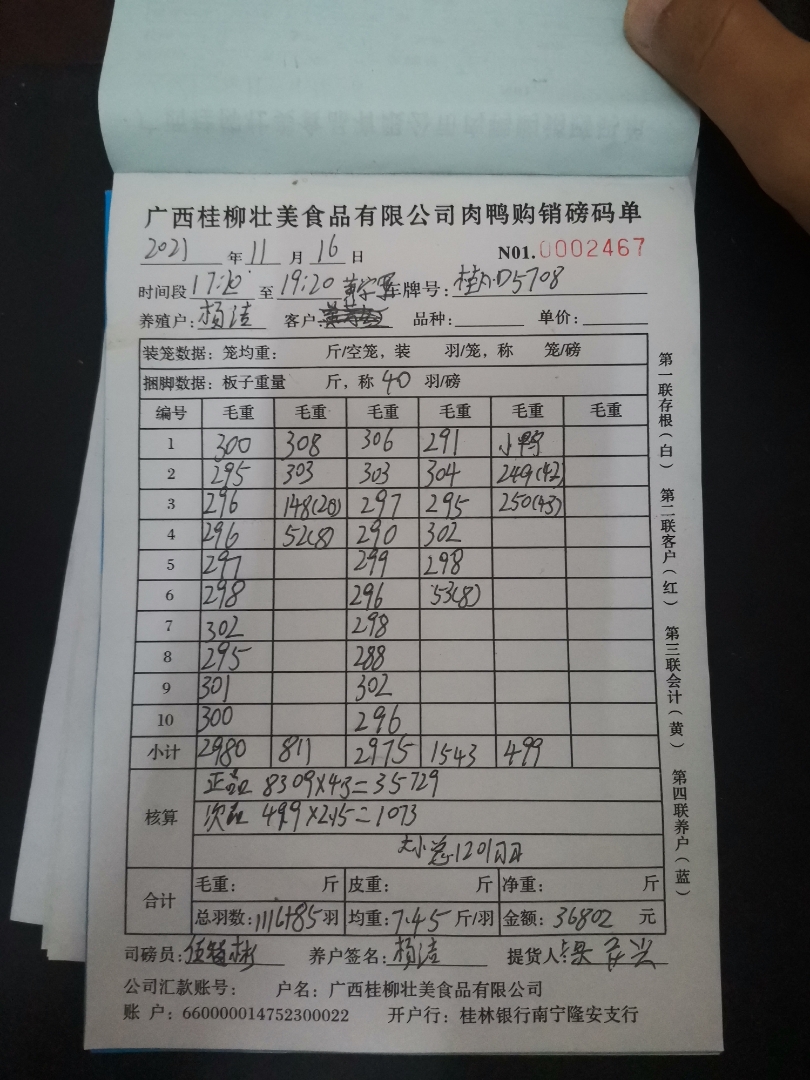 广西桂柳壮美食品有限公司肉鸭购销磅码单
2021 年 11 月 16 日 N01.0002467
时间段 17:20 至 19:20 车牌号: 桂 D5708
养殖户: 杨洁 客户: 品种: 单价:
装笼数据: 笼均重: 斤/空笼, 装 羽/笼, 称 笼/磅
捆脚数据: 板子重量 斤, 称 40 羽/磅
编号 毛重 毛重 毛重 毛重 毛重 毛重
1 300 308 306 291 小鸭
2 295 303 303 304 249(42)
3 296 148(20) 297 295 250(43)
4 296 52(8) 290 302
5 297 299 298
6 298 296 53(8)
7 302 298
8 295 288
9 301 302
10 300 296
小计 2980 811 2975 1543 499
核算
正品 8309×4.3=35729
次品 499×2.15=1073
大小总1201羽
合计
毛重: 斤 皮重: 斤 净重: 斤
总羽数: 1116+85 羽 均重: 7.45 斤/羽 金额: 36802 元
司磅员: 养户签名: 杨洁 提货人:
公司汇款账号: 户名: 广西桂柳壮美食品有限公司
账 户: 660000014752300022 开户行: 桂林银行南宁隆安支行
第一联存根(白) 第二联客户(红) 第三联会计(黄) 第四联养户(蓝)